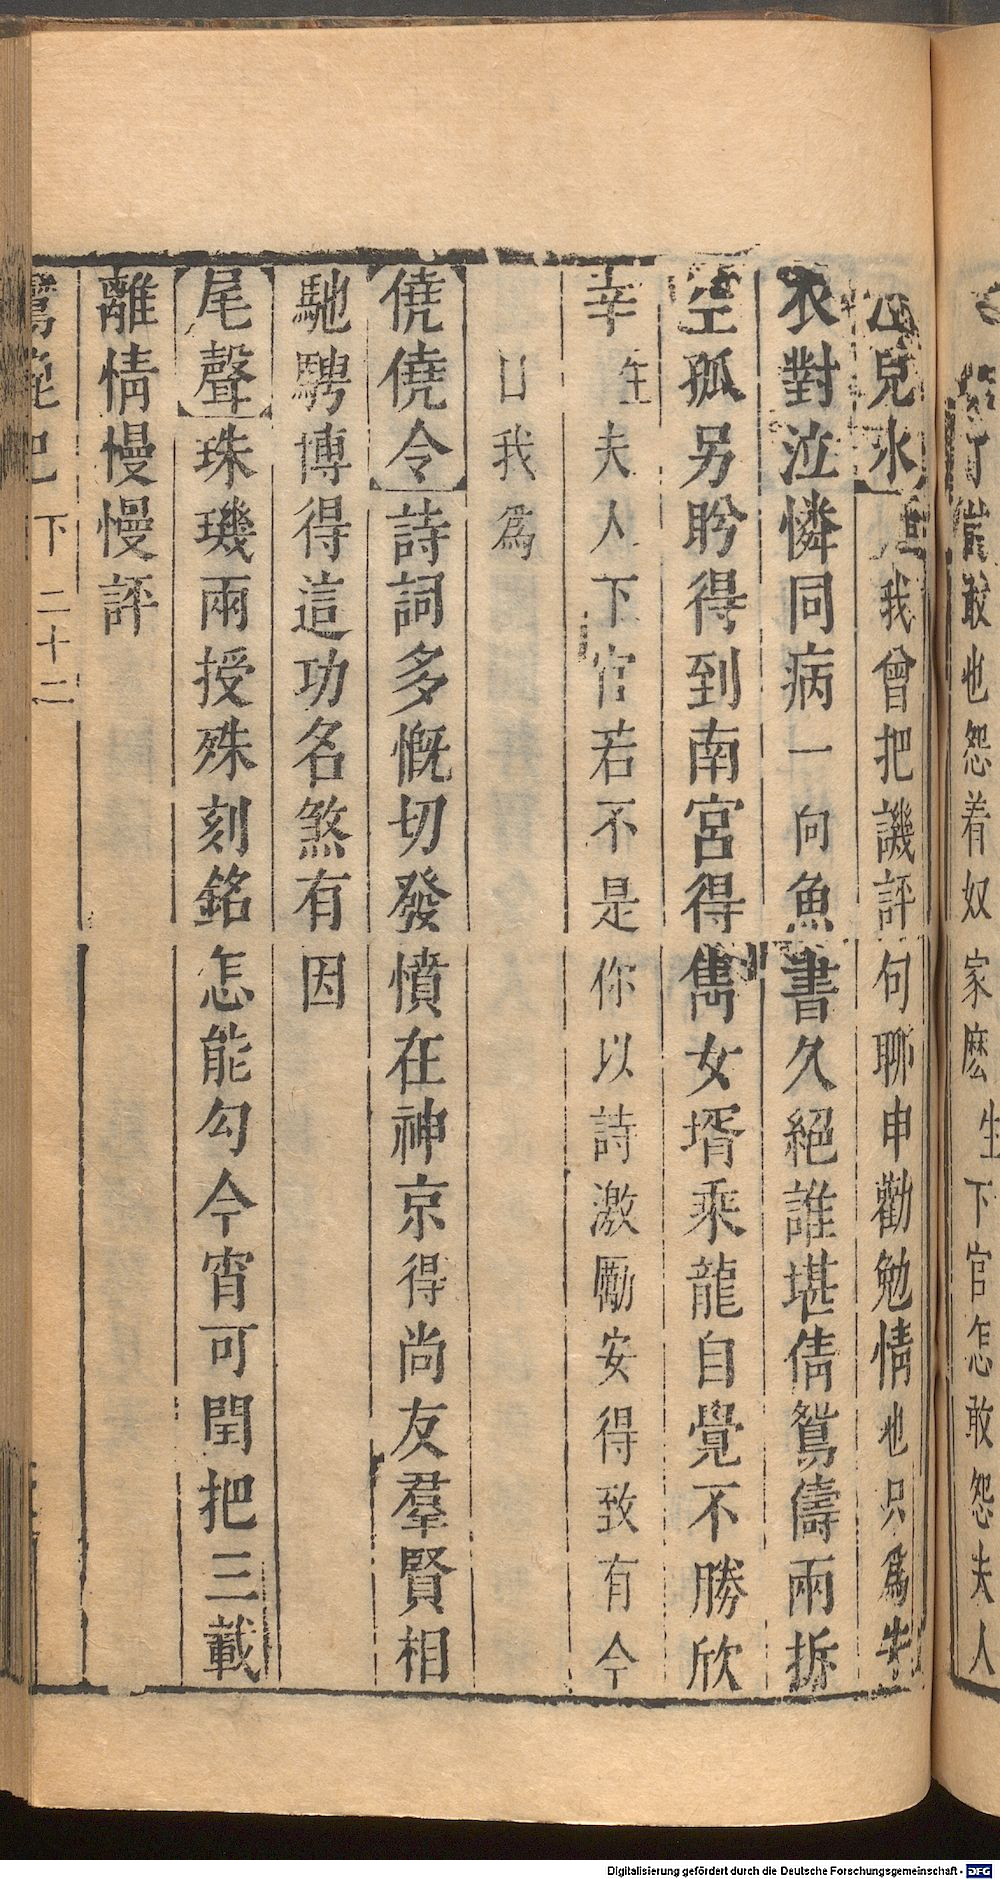 敢也怨着奴家麽生下官怎敢怨夫人
兒水我曾把譏評句聊申勸勉情也只爲牛
衣對泣憐同病一向魚書久絕誰堪倩鴛儔兩拆
空孤另盻得到南宮得雋女壻乘龍自覺不勝欣
幸生夫人下官若不是你以詩激勵安得致有今
日我爲
僥僥令詩詞多慨切發憤在神京得尚友羣賢相
馳騁博得這功名煞有因
尾聲珠璣兩授殊刻銘怎能勾今宵可閏把三載
離情慢慢評
下 二十二
Digitalisierung gefördert durch die Deutsche Forschungsgemeinschaft - DFG